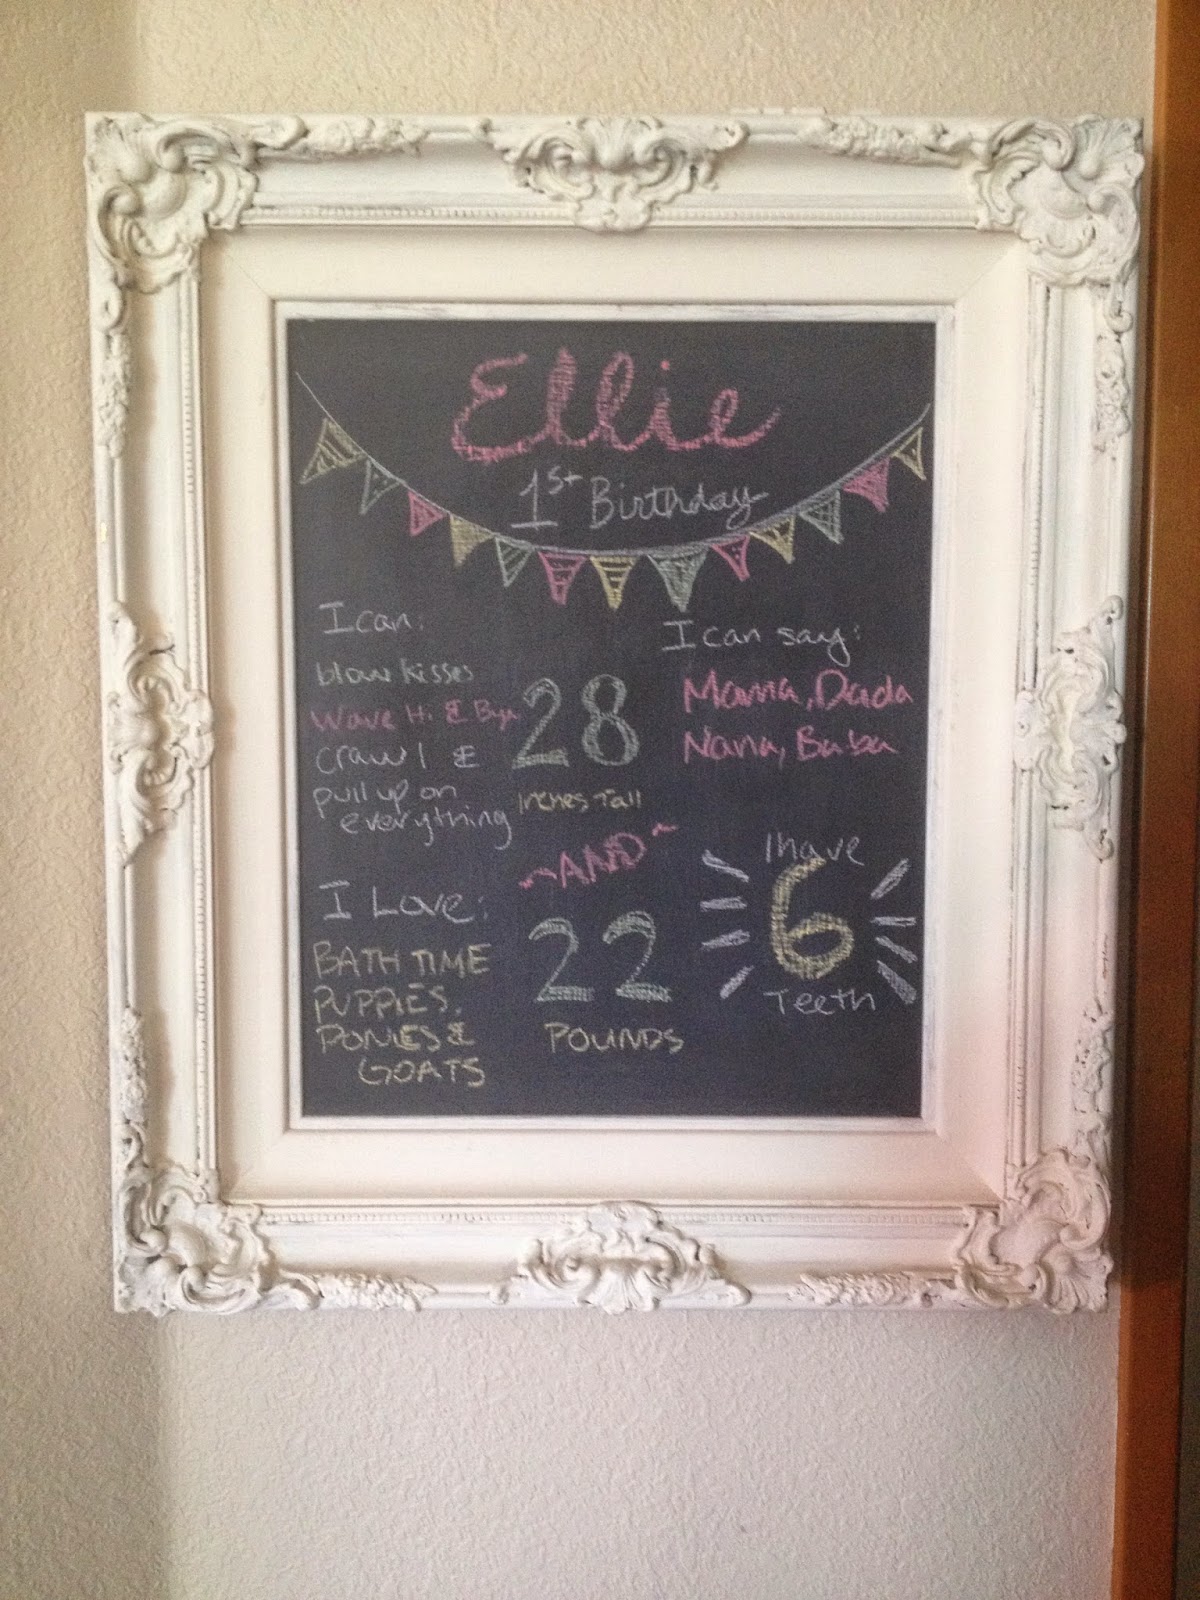 Ellie
1st Birthday
I can:
blow kisses
Wave Hi & Bye
crawl &
pull up on
everything
28
Inches Tall
~AND~
22
POUNDS
I can say:
Mama, Dada
Nana, Baba
I Love:
BATH TIME
PUPPIES,
PONIES &
GOATS
I have
6
Teeth